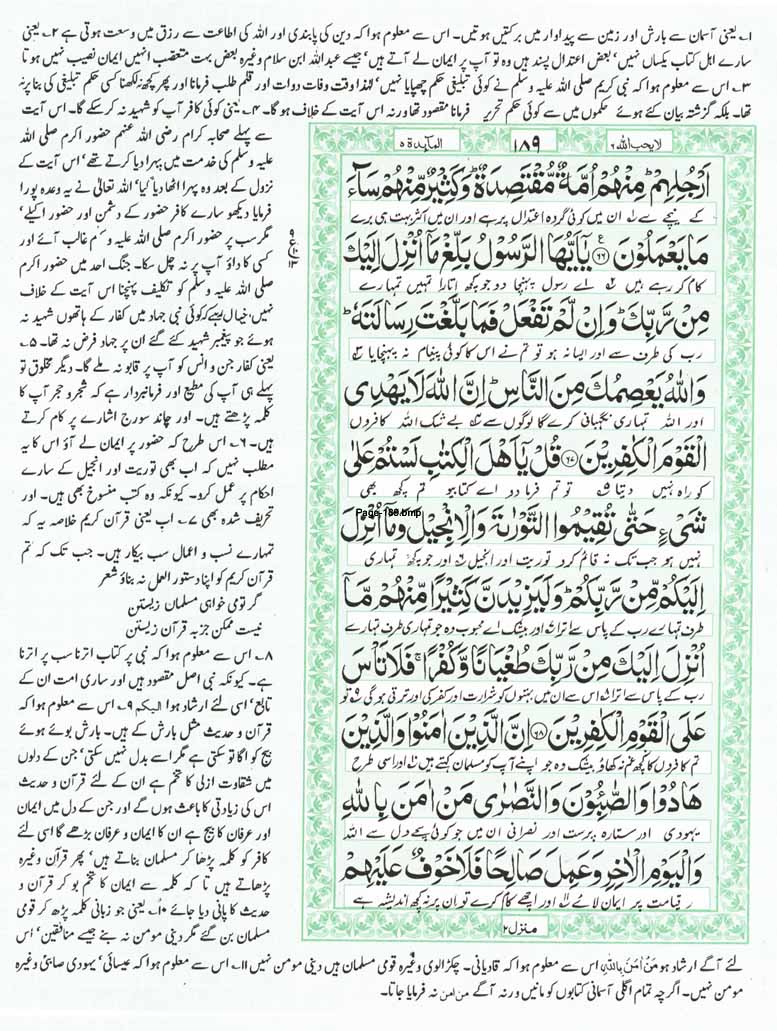 ۱۔ یعنی آسمان سے بارش اور زمین سے پیداوار میں برکتیں ہوتیں۔ اس سے معلوم ہوا کہ دین کی پابندی اور اللہ کی اطاعت سے رزق میں وسعت ہوتی ہے ۲۔ یعنی
سارے اہل کتاب یکساں نہیں' بعض اعتدال پسند ہیں وہ تو آپ پر ایمان لے آتے ہیں' جیسے عبداللہ ابن سلام وغیرہ بعض بہت متعصب انہیں ایمان نصیب نہیں ہوتا
۳۔ اس سے معلوم ہوا کہ نبی کریم صلی اللہ علیہ وسلم نے کوئی تبلیغی حکم چھپایا نہیں' لہٰذا وقت وفات دوات اور قلم طلب فرمانا اور پھر کچھ نہ لکھنا کسی حکم تبلیغی کی بنا پر نہ
تھا۔ بلکہ گزشتہ بیان کئے ہوئے حکموں میں سے کوئی حکم تحریر فرمانا مقصود تھا ورنہ اس آیت کے خلاف ہو گا۔ ۴۔ یعنی کوئی کافر آپ کو شہید نہ کر سکے گا۔ اس آیت
سے پہلے صحابہ کرام رضی اللہ عنہم حضور اکرم صلی اللہ
علیہ وسلم کی خدمت میں پہرا دیا کرتے تھے' اس آیت کے
نزول کے بعد وہ پہرا اٹھا دیا گیا' اللہ تعالیٰ نے یہ وعدہ پورا
فرمایا دیکھو سارے کافر حضور کے دشمن اور حضور اکیلے'
مگر سب پر حضور اکرم صلی اللہ علیہ وسلم غالب آئے اور
کسی کا داؤ آپ پر نہ چل سکا۔ جنگ احد میں حضور اکرم
صلی اللہ علیہ وسلم کو تکلیف پہنچنا اس آیت کے خلاف
نہیں' خیال رہے کہ کوئی نبی جہاد میں کفار کے ہاتھوں شہید نہ
ہوئے جو پیغمبر شہید کئے گئے ان پر جہاد فرض نہ تھا۔ ۵۔
یعنی کفار جن و انس کو آپ پر قابو نہ ملے گا۔ دیگر مخلوق تو
پہلے ہی آپ کی مطیع اور فرمانبردار ہے کہ شجر و حجر آپ کا
کلمہ پڑھتے ہیں۔ اور چاند سورج اشارے پر کام کرتے
ہیں۔ ۶۔ اس طرح کہ حضور پر ایمان لے آؤ اس کا یہ
مطلب نہیں کہ اب بھی توریت اور انجیل کے سارے
احکام پر عمل کرو۔ کیونکہ وہ کتب منسوخ بھی ہیں۔ اور
تحریف شدہ بھی ۷۔ اب یعنی قرآن کریم خلاصہ یہ کہ
تمہارے نسب و اعمال سب بیکار ہیں۔ جب تک کہ تم
قرآن کریم کو اپنا دستور العمل نہ بناؤ شعر
گر تو می خواہی مسلمان زیستن
نیست ممکن جز بہ قرآن زیستن
۸۔ اس سے معلوم ہوا کہ نبی پر کتاب اترنا سب پر اترنا
ہے۔ کیونکہ نبی اصل مقصود ہیں اور ساری امت ان کے
تابع' اسی لئے ارشاد ہوا الیکم ۹۔ اس سے معلوم ہوا کہ
قرآن و حدیث مثل بارش کے ہیں۔ بارش بوئے ہوئے
بیج کو اگا تو سکتی ہے مگر اسے بدل نہیں سکتی' جن کے دلوں
میں شقاوت ازلی کا تخم ہے ان کے لئے قرآن و حدیث
اس کی زیادتی کا باعث ہوں گے اور جن کے دل میں ایمان
اور عرفان کا بیج ہے ان کا ایمان و عرفان بڑھے گا اسی لئے
کافر کو کلمہ پڑھا کر مسلمان بناتے ہیں' پھر قرآن وغیرہ
پڑھاتے ہیں تا کہ کلمہ سے ایمان کا تخم بو کر قرآن و
حدیث کا پانی دیا جائے ۱۰۔ یعنی جو زبانی کلمہ پڑھ کر قومی
مسلمان بن گئے مگر دینی مومن نہ بنے جیسے منافقین' اس
لایحب اللہ ۶
۱۸۹
المآیدۃ ۵
اَرْجُلِهِمْ ؕ مِنْهُمْ اُمَّةٌ مُّقْتَصِدَةٌ ؕ وَكَثِيْرٌ مِّنْهُمْ سَآءَ
کے نیچے سے ۱ ان میں کوئی گروہ اعتدال پر ہے اور ان میں اکثر بہت ہی برے
مَا يَعْمَلُوْنَ ۶۶ يٰۤاَيُّهَا الرَّسُوْلُ بَلِّغْ مَاۤ اُنْزِلَ اِلَيْكَ
کام کر رہے ہیں ۲ اے رسول پہنچا دو جو کچھ اتارا تمہیں تمہارے
مِنْ رَّبِّكَ ؕ وَاِنْ لَّمْ تَفْعَلْ فَمَا بَلَّغْتَ رِسَالَتَهٗ ؕ
رب کی طرف سے اور ایسا نہ ہو تو تم نے اس کا کوئی پیغام نہ پہنچایا ۳
وَاللّٰهُ يَعْصِمُكَ مِنَ النَّاسِ ؕ اِنَّ اللّٰهَ لَا يَهْدِى
اور اللہ تمہاری نگہبانی کرے گا لوگوں سے ۴ بے شک اللہ کافروں
الْقَوْمَ الْكٰفِرِيْنَ ۶۷ قُلْ يٰۤاَهْلَ الْكِتٰبِ لَسْتُمْ عَلٰى
کو راہ نہیں دیتا ۵ تم فرما دو اے کتابیو تم کچھ بھی
شَىْءٍ حَتّٰى تُقِيْمُوا التَّوْرٰىةَ وَالْاِنْجِيْلَ وَمَاۤ اُنْزِلَ
Page-189.bmp
نہیں ہو جب تک نہ قائم کرو توریت اور انجیل ۶ اور جو کچھ تمہاری
اِلَيْكُمْ مِّنْ رَّبِّكُمْ ؕ وَلَيَزِيْدَنَّ كَثِيْرًا مِّنْهُمْ مَّاۤ
طرف تمہارے رب کے پاس سے اترا ۷ اور بیشک اے محبوب وہ جو تمہاری طرف تمہارے
اُنْزِلَ اِلَيْكَ مِنْ رَّبِّكَ طُغْيَانًا وَّكُفْرًا ۚ فَلَا تَاْسَ
رب کے پاس سے اترا ۸ اس سے ان میں بہتوں کو شرارت اور کفر کی اور ترقی ہو گی ۹ تو
عَلَى الْقَوْمِ الْكٰفِرِيْنَ ۶۸ اِنَّ الَّذِيْنَ اٰمَنُوْا وَالَّذِيْنَ
تم کافروں کا کچھ غم نہ کھاؤ بیشک وہ جو اپنے آپ کو مسلمان کہتے ہیں ۱۰ اور اسی طرح
هَادُوْا وَالصّٰبِـُٔوْنَ وَالنَّصٰرٰى مَنْ اٰمَنَ بِاللّٰهِ
یہودی اور ستارہ پرست اور نصرانی ان میں جو کوئی سچے دل سے اللہ
وَالْيَوْمِ الْاٰخِرِ وَعَمِلَ صَالِحًا فَلَا خَوْفٌ عَلَيْهِمْ
و قیامت پر ایمان لائے ۱۱ اور اچھے کام کرے تو ان پر نہ کچھ اندیشہ ہے
منزل ۲
لئے آگے ارشاد ہو مَنْ اٰمَنَ بِاللّٰہِ اس سے معلوم ہوا کہ قادیانی۔ چکڑالوی وغیرہ قومی مسلمان ہیں دینی مومن نہیں ۱۱۔ اس سے معلوم ہوا کہ عیسائی' یہودی صابئی وغیرہ
مومن نہیں۔ اگرچہ تمام اگلی آسمانی کتابوں کو مانیں ورنہ آگے من امن نہ فرمایا جاتا۔